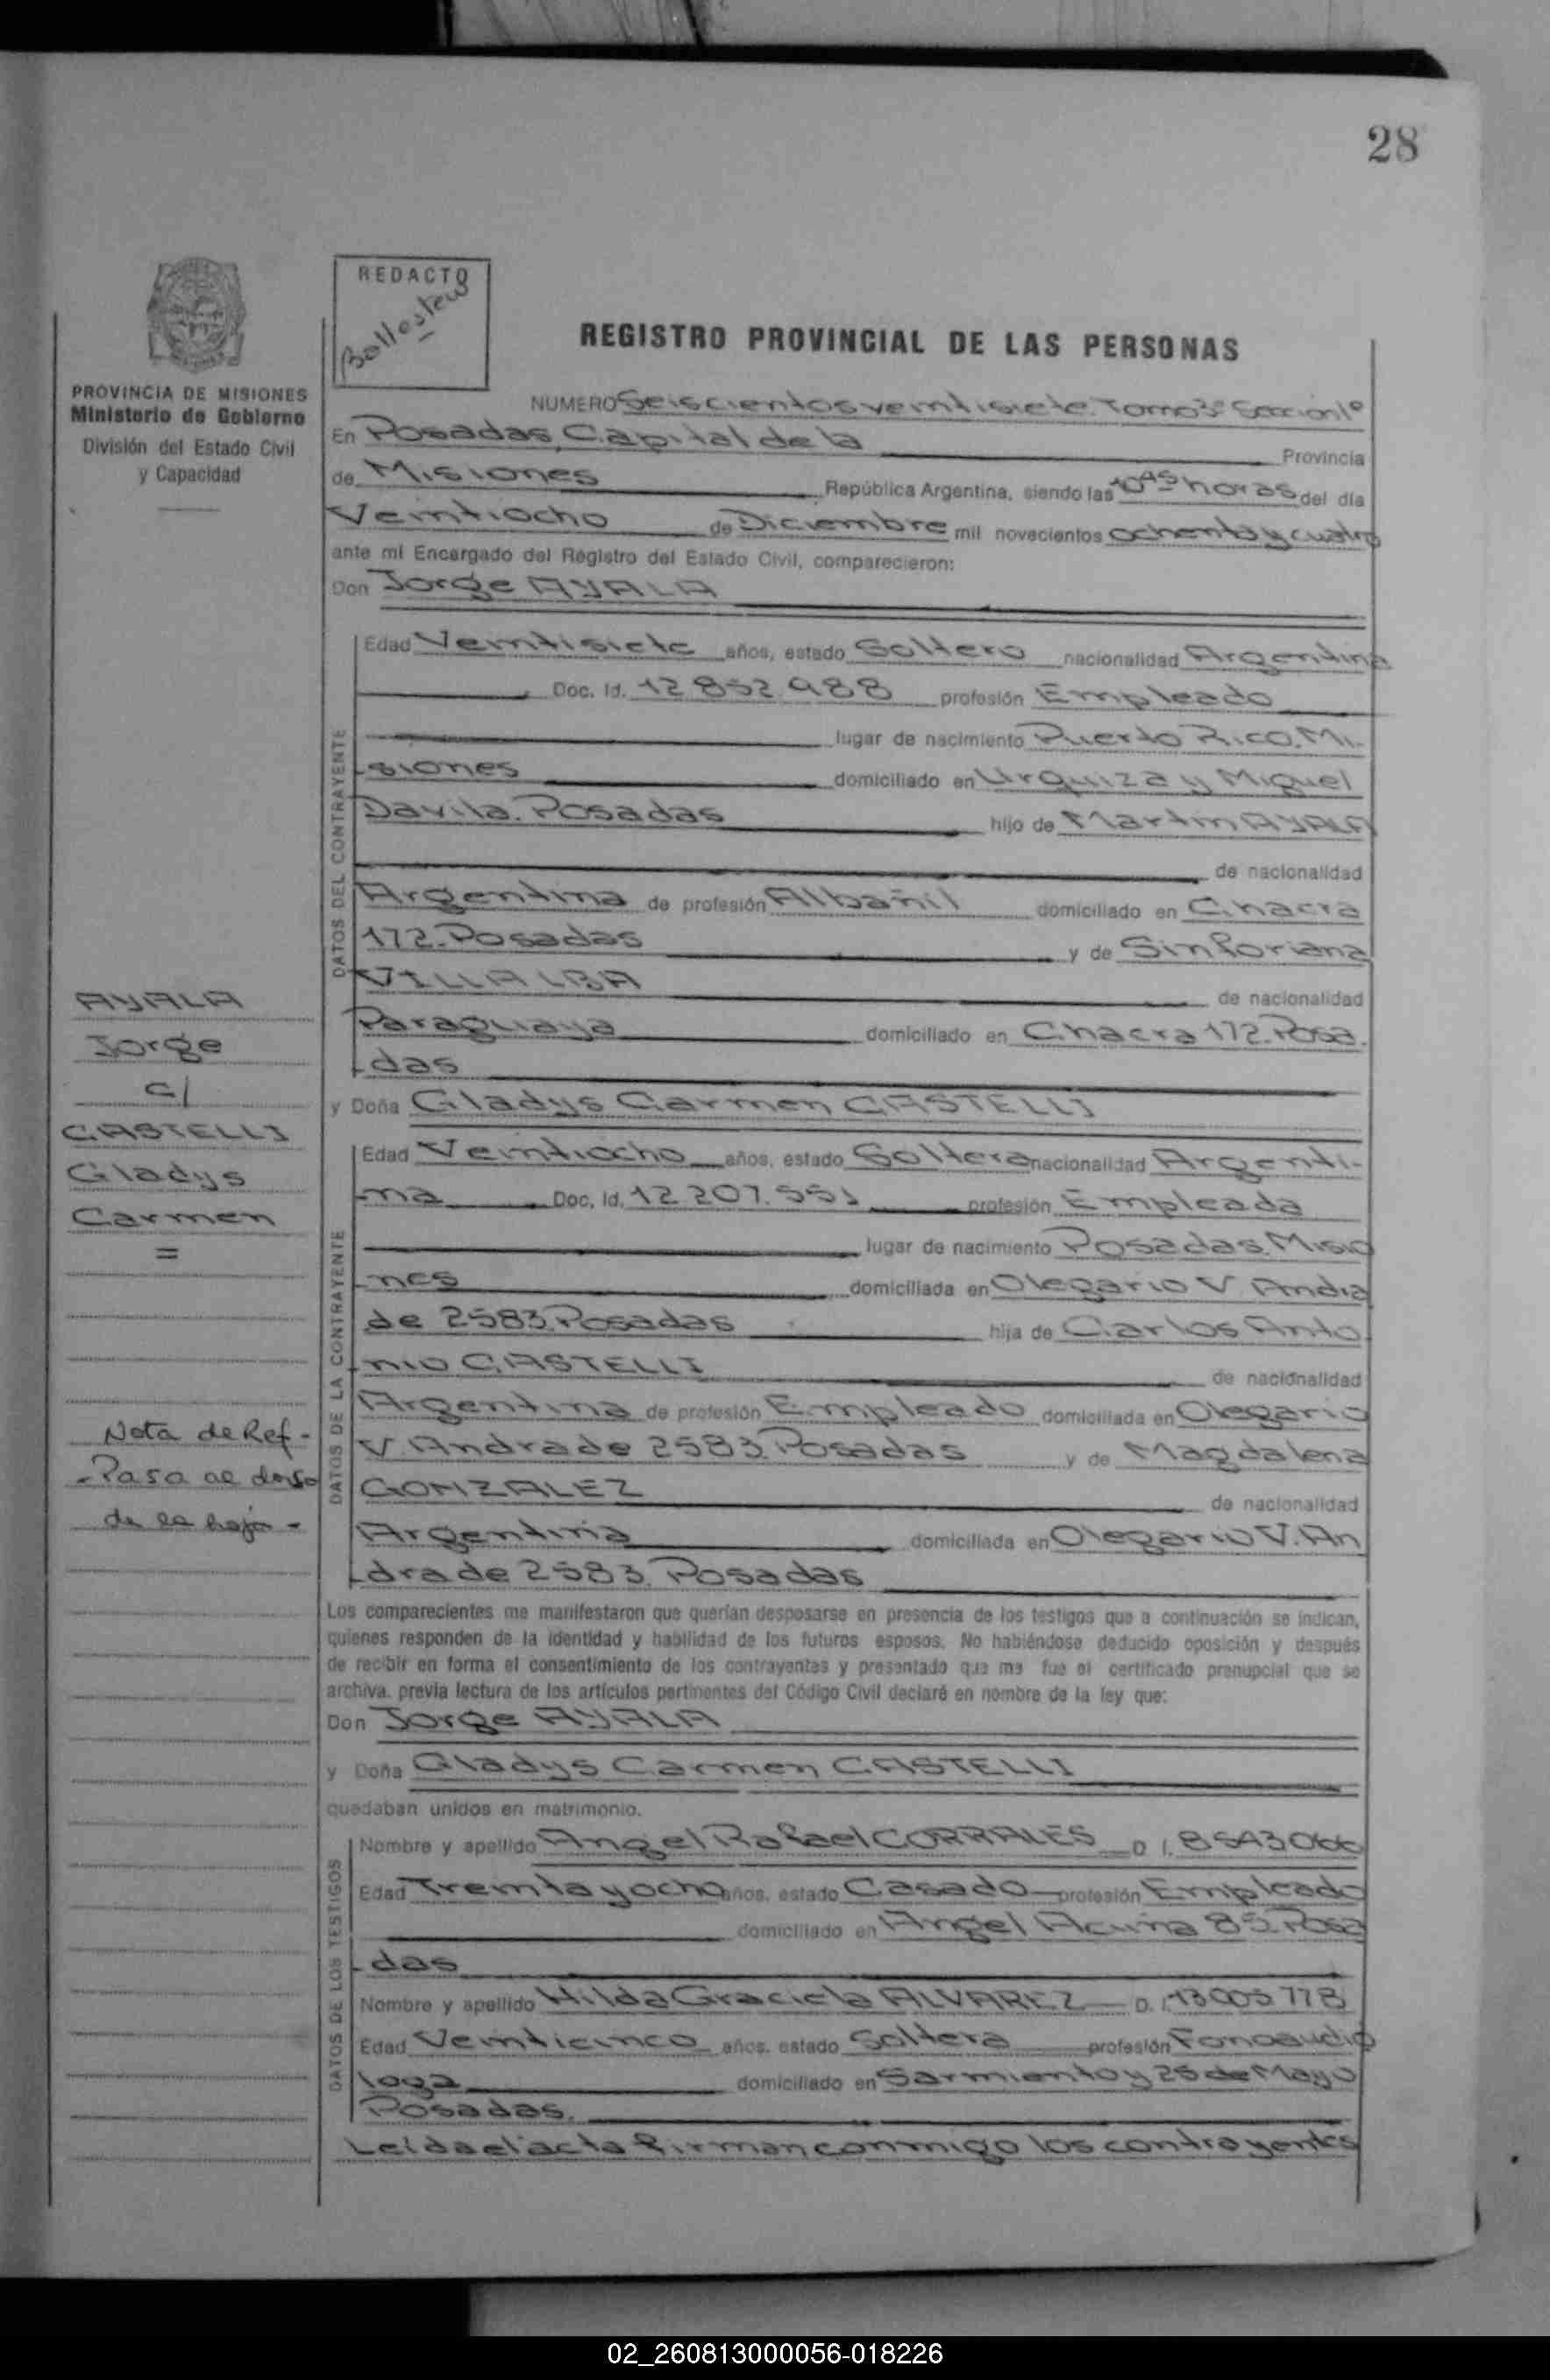 28
REDACTO
Ballesteros
REGISTRO PROVINCIAL DE LAS PERSONAS
PROVINCIA DE MISIONES
Ministerio de Gobierno
División del Estado Civil
y Capacidad
NUMERO Seiscientos veintisiete. Tomo 3º Sección 1º
En Posadas, Capital de la Provincia
de Misiones República Argentina, siendo las 10,45 horas del día
Veintiocho de Diciembre mil novecientos ochenta y cuatro
ante mi Encargado del Registro del Estado Civil, comparecieron:
Don Jorge AYALA
DATOS DEL CONTRAYENTE
Edad Veintisiete años, estado Soltero nacionalidad Argentina
Doc. Id. 12.852.988 profesión Empleado
lugar de nacimiento Puerto Rico. Mi-
siones domiciliado en Urquiza y Miguel
Davila. Posadas hijo de Martin AYALA
de nacionalidad
Argentina de profesión Albañil domiciliado en Chacra
172. Posadas y de Sinforiana
VILLALBA de nacionalidad
Paraguaya domiciliado en Chacra 172. Posa
das
y Doña Gladys Carmen CASTELLI
AYALA
Jorge
c/
CASTELLI
Gladys
Carmen
=
Nota de Ref-
-Pasa al dorso
de la hoja-
DATOS DE LA CONTRAYENTE
Edad Veintiocho años, estado Soltera nacionalidad Argenti-
na Doc. Id. 12.207.551 profesión Empleada
lugar de nacimiento Posadas. Misio
nes domiciliada en Olegario V. Andra
de 2583. Posadas hija de Carlos Anto
nio CASTELLI de nacionalidad
Argentina de profesión Empleado domiciliada en Olegario
V. Andrade 2583. Posadas y de Magdalena
GONZALEZ de nacionalidad
Argentina domiciliada en Olegario V. An
drade 2583. Posadas
Los comparecientes me manifestaron que querían desposarse en presencia de los testigos que a continuación se indican,
quienes responden de la identidad y habilidad de los futuros esposos. No habiéndose deducido oposición y después
de recibir en forma el consentimiento de los contrayentes y presentado que me fue el certificado prenupcial que se
archiva, previa lectura de los artículos pertinentes del Código Civil declaré en nombre de la ley que:
Don Jorge AYALA
y Doña Gladys Carmen CASTELLI
quedaban unidos en matrimonio.
DATOS DE LOS TESTIGOS
Nombre y apellido Angel Rafael CORRALES D.I. 8543066
Edad Treinta y ocho años, estado Casado profesión Empleado
domiciliado en Angel Acuña 85. Posa
das
Nombre y apellido Hilda Graciela ALVAREZ D.I. 13005778
Edad Veinticinco años, estado Soltera profesión Fonoaudio
loga domiciliado en Sarmiento y 25 de Mayo
Posadas.
Leida el acta firman conmigo los contrayentes
02_260813000056-018226